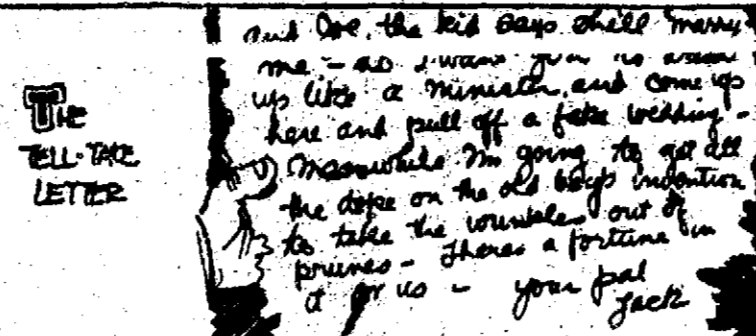 THE
TELL-TALE
LETTER
and Joe, the kid says she'll marry
me - so I want you to dress
up like a minister, and come up
here and pull off a fake wedding -
Meanwhile I'm going to get all
the dope on the old boys invention
to take the wrinkles out of
prunes - Theres a fortune in
it for us - your pal
Jack